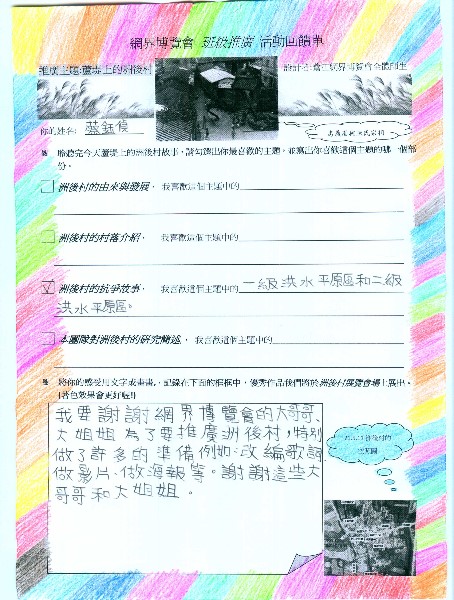 網界博覽會 班級推廣 活動回饋單
推廣主題:蘆堤上的洲後村
你的姓名: 蔡鈺儂
聆聽完今天蘆堤上的洲後村故事，請勾選出你最喜歡的主題，並寫出你喜歡這個主題的哪一個部
份。
洲後村的由來與發展， 我喜歡這個主題中的
洲後村的村落介紹， 我喜歡這個主題中的
洲後村的抗爭故事， 我喜歡這個主題中的 二級洪水平原區和二級
洪水平原區。
本團隊對洲後村的研究簡述， 我喜歡這個主題中的
將你的感受用文字或畫畫，記錄在下面的框框中，優秀作品我們將於洲後村展覽會場上展出。
(著色效果會更好喔!)
我要謝謝網界博覽會的大哥哥、
大姐姐為了要推廣洲後村，特別
做了許多的準備例如:改編歌詞
做影片、做海報等。謝謝這些大
哥哥和大姐姐。